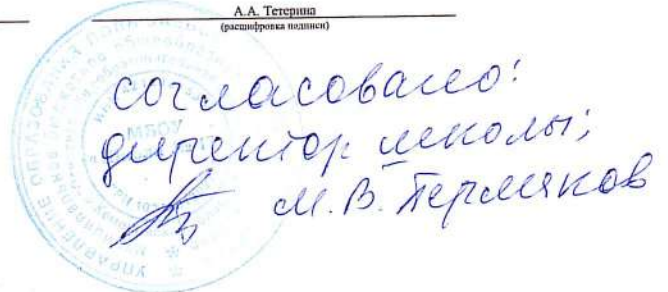 А.А. Тетерина
(расшифровка подписи)
согласовано:
директор школы;
М.В. Пермяков
УПРАВЛЕНИЕ ОБРАЗОВАНИЯ
МБОУ